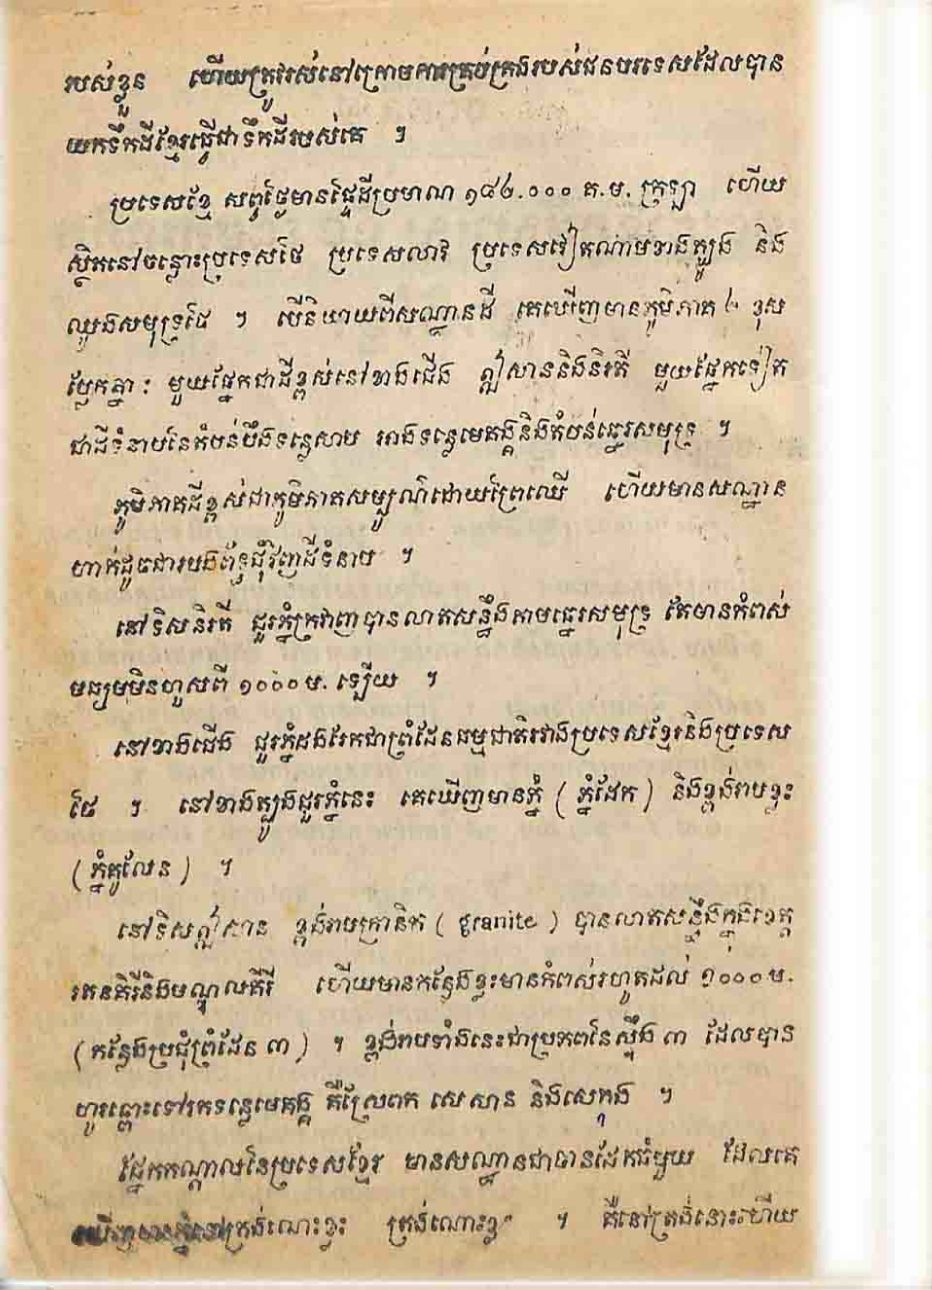 របស់ខ្លួន ហើយត្រូវរស់នៅក្រោមការគ្រប់គ្រងរបស់ជនបរទេសដែលបាន
យកទឹកដីខ្មែរធ្វើជាទឹកដីរបស់គេ ។
ប្រទេសខ្មែ សព្វថ្ងៃមានផ្ទៃដីប្រមាណ ១៨៤.០០០ គ.ម. ក្រឡា ហើយ
ស្ថិតនៅចន្លោះប្រទេសថៃ ប្រទេសលាវ ប្រទេសវៀតណាមខាងត្បូង និង
ឈូងសមុទ្រថៃ ។ បើនិយាយពីសណ្ឋានដី គេឃើញមានភូមិភាគ ២ ខុស
ប្លែកគ្នា : មួយផ្នែកជាដីខ្ពស់នៅខាងជើង ឦសាននិងនិរតី មួយផ្នែកទៀត
ជាដីទំនាបនៃតំបន់បឹងទន្លេសាប រវាងទន្លេមេគង្គនិងតំបន់ឆ្នេរសមុទ្រ ។
ភូមិភាគដីខ្ពស់ជាភូមិភាគសម្បូណ៌ដោយព្រៃឈើ ហើយមានសណ្ឋាន
ហាក់ដូចជារបងព័ទ្ធជុំវិញដីទំនាប ។
នៅទិសនិរតី ជួរភ្នំក្រវាញបានលាតសន្ធឹងតាមឆ្នេរសមុទ្រ តែមានកំពស់
មធ្យមមិនហួសពី ១០០០ម. ឡើយ ។
នៅខាងជើង ជួរភ្នំដងរែកជាព្រំដែនធម្មជាតិរវាងប្រទេសខ្មែរនិងប្រទេស
ថៃ ។ នៅខាងត្បូងជួរភ្នំនេះ គេឃើញមានភ្នំ ( ភ្នំដែក ) និងខ្ពង់រាបខ្លះ
( ភ្នំគូលែន ) ។
នៅទិសឦសាន ខ្ពង់រាបក្រានិត ( granite ) បានលាតសន្ធឹងក្នុងខេត្ត
រតនគិរីនិងមណ្ឌុលគិរី ហើយមានកន្លែងខ្លះមានកំពស់រហូតដល់ ១០០០ម.
( កន្លែងប្រជុំព្រំដែន ៣ ) ។ ខ្ពង់រាបទាំងនេះជាប្រភពនៃស្ទឹង ៣ ដែលបាន
ហូរឆ្ពោះទៅរកទន្លេមេគង្គ គឺស្រែពក សេសាន និងសេកុង ។
ផ្នែកកណ្ដាលនៃប្រទេសខ្មែរ មានសណ្ឋានជាចានដែកធំមួយ ដែលគេ
ឃើញមានភ្នំនៅត្រង់ណេះខ្លះ ត្រង់ណោះខ្លះ ។ គឺនៅត្រង់នោះហើយ